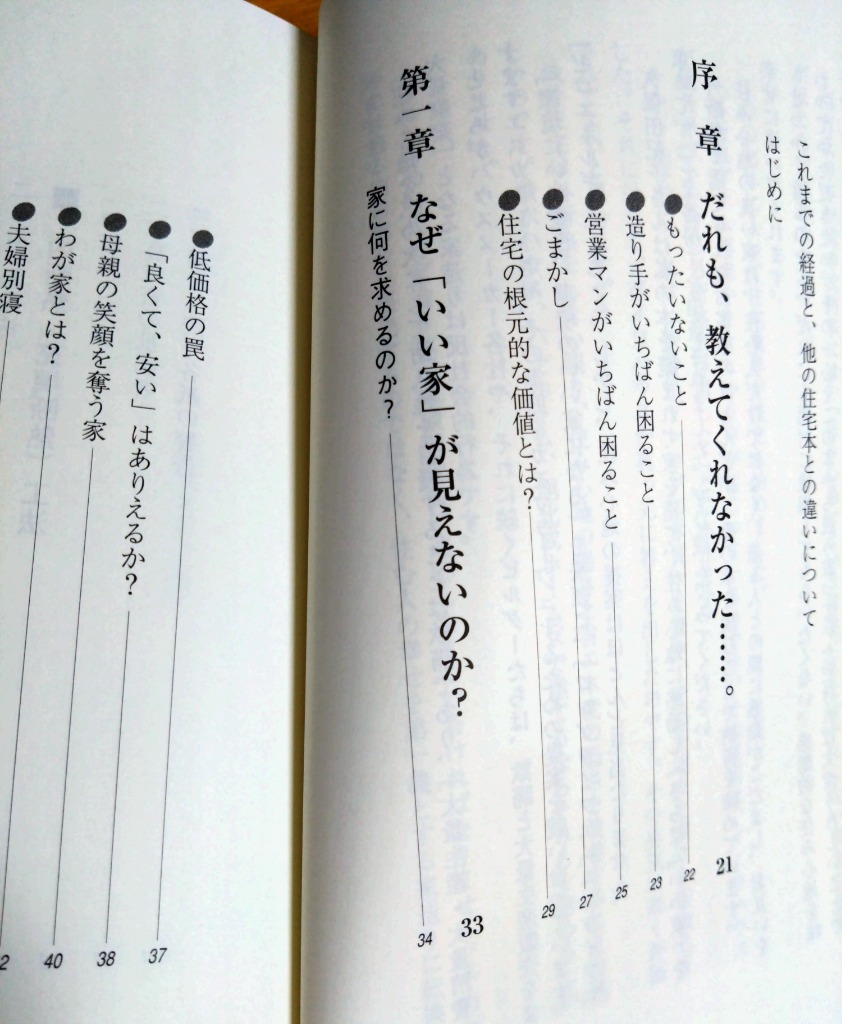 これまでの経過と、他の住宅本との違いについて
はじめに
序　章　だれも、教えてくれなかった……。 21
●もったいないこと 22
●造り手がいちばん困ること 23
●営業マンがいちばん困ること 25
●ごまかし 27
●住宅の根元的な価値とは? 29
第一章　なぜ「いい家」が見えないのか? 33
家に何を求めるのか? 34
●低価格の罠 37
●「良くて、安い」はありえるか? 38
●母親の笑顔を奪う家 40
●わが家とは?
●夫婦別寝